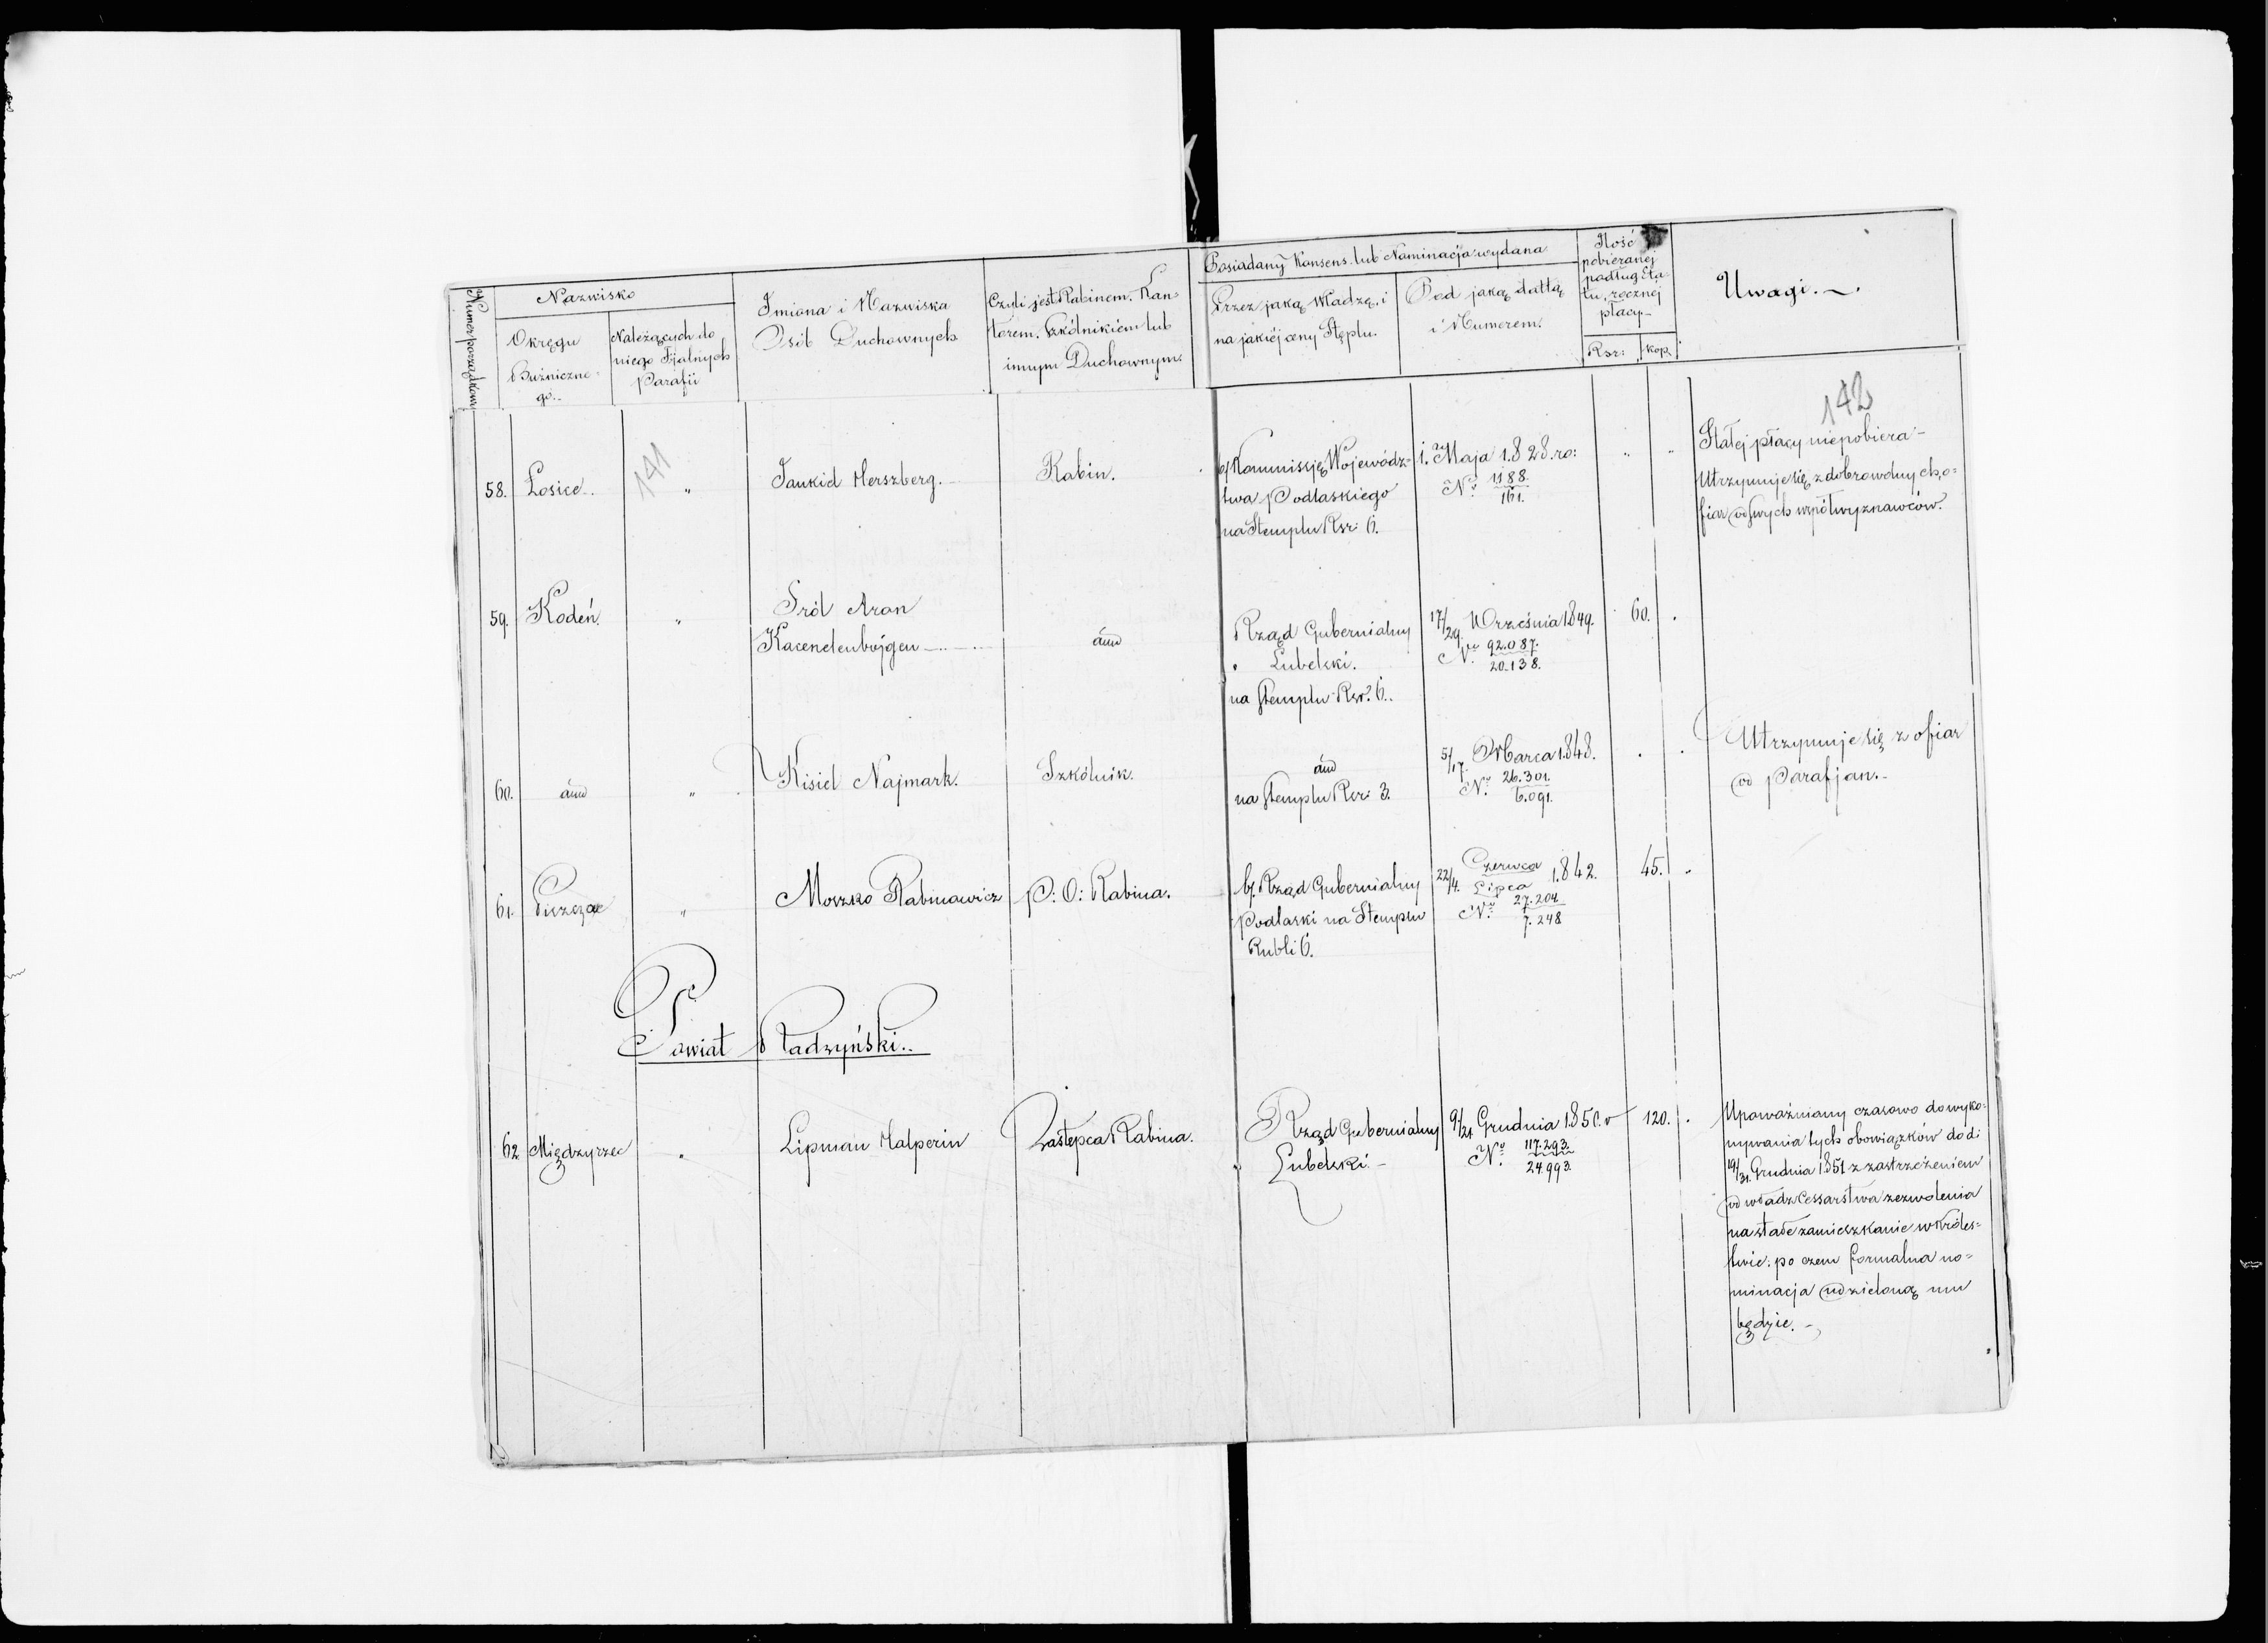 Numer porządkowy
Nazwisko
Okręgu
Bużniczne-
go..
Należących do
niego Fijalnych
Parafii
Imiona i Nazwiska
Osób Duchownych
Czyli jest Rabinem. Kan-
torem. Szkólnikiem lub
innym Duchownym.
Posiadany Konsens. lub Nominacja wydana
Przez jaką Władzę, i
na jakiéj ceny Stęplu.
Pod jaką dattą
i Numerem.
Ilość
pobieranej
podług Eta-
tu, rocznej
płacy
Rsr: kop.
Uwagi.
141
142
58. Łosice " Jankiel Herszberg. Rabin.
b/ Kommisję Wojewódz=
twa Podlaskiego
na Stemplu Rsr: 6.
1. Maja 1.828.ro:
No 1188.
161.
" "
Stałej płacy niepobiera-
Utrzymuje się z dobrowolnych, o=
fiar od swych współwyznawców.
59. Kodeń. "
Sról Aron
Kacenelenbojgen
dito
Rząd Gubernialny
Lubelski.
na Stemplu Rsr. 6..
17/29. Września 1849.
No 92.087.
20.138.
60.
60. dito " Kisiel Najmark. Szkólnik.
dito
na Stemplu Rsr: 3.
5/17. Marca 1.848.
No 26.301.
6.091.
Utrzymuje się z ofiar
od Parafjan.-
61. Piszczac " Moszko Rabinowicz P: O: Rabina.
b/. Rząd Gubernialny
Podlaski na Stemplu
Rubli 6.
22/4. Czerwca
Lipca 1.842.
No 27.204
7.248
45.
Powiat Radzyński..
62. Międzyrzec " Lipman Halperin Zastępca Rabina.
Rząd Gubernialny
Lubelski.-
9/21 Grudnia 1.850.
No 117.293.
24.993.
120.
Upoważniany czasowo do wyko=
nywania tych obowiązków do d:
19/31. Grudnia 1.851 z zastrzeżeniem
od władz Cessarstwa zezwolenia
na stałe zamieszkanie w Króles=
twie. po czem formalna no=
minacja udzieloną mu
będzie.-